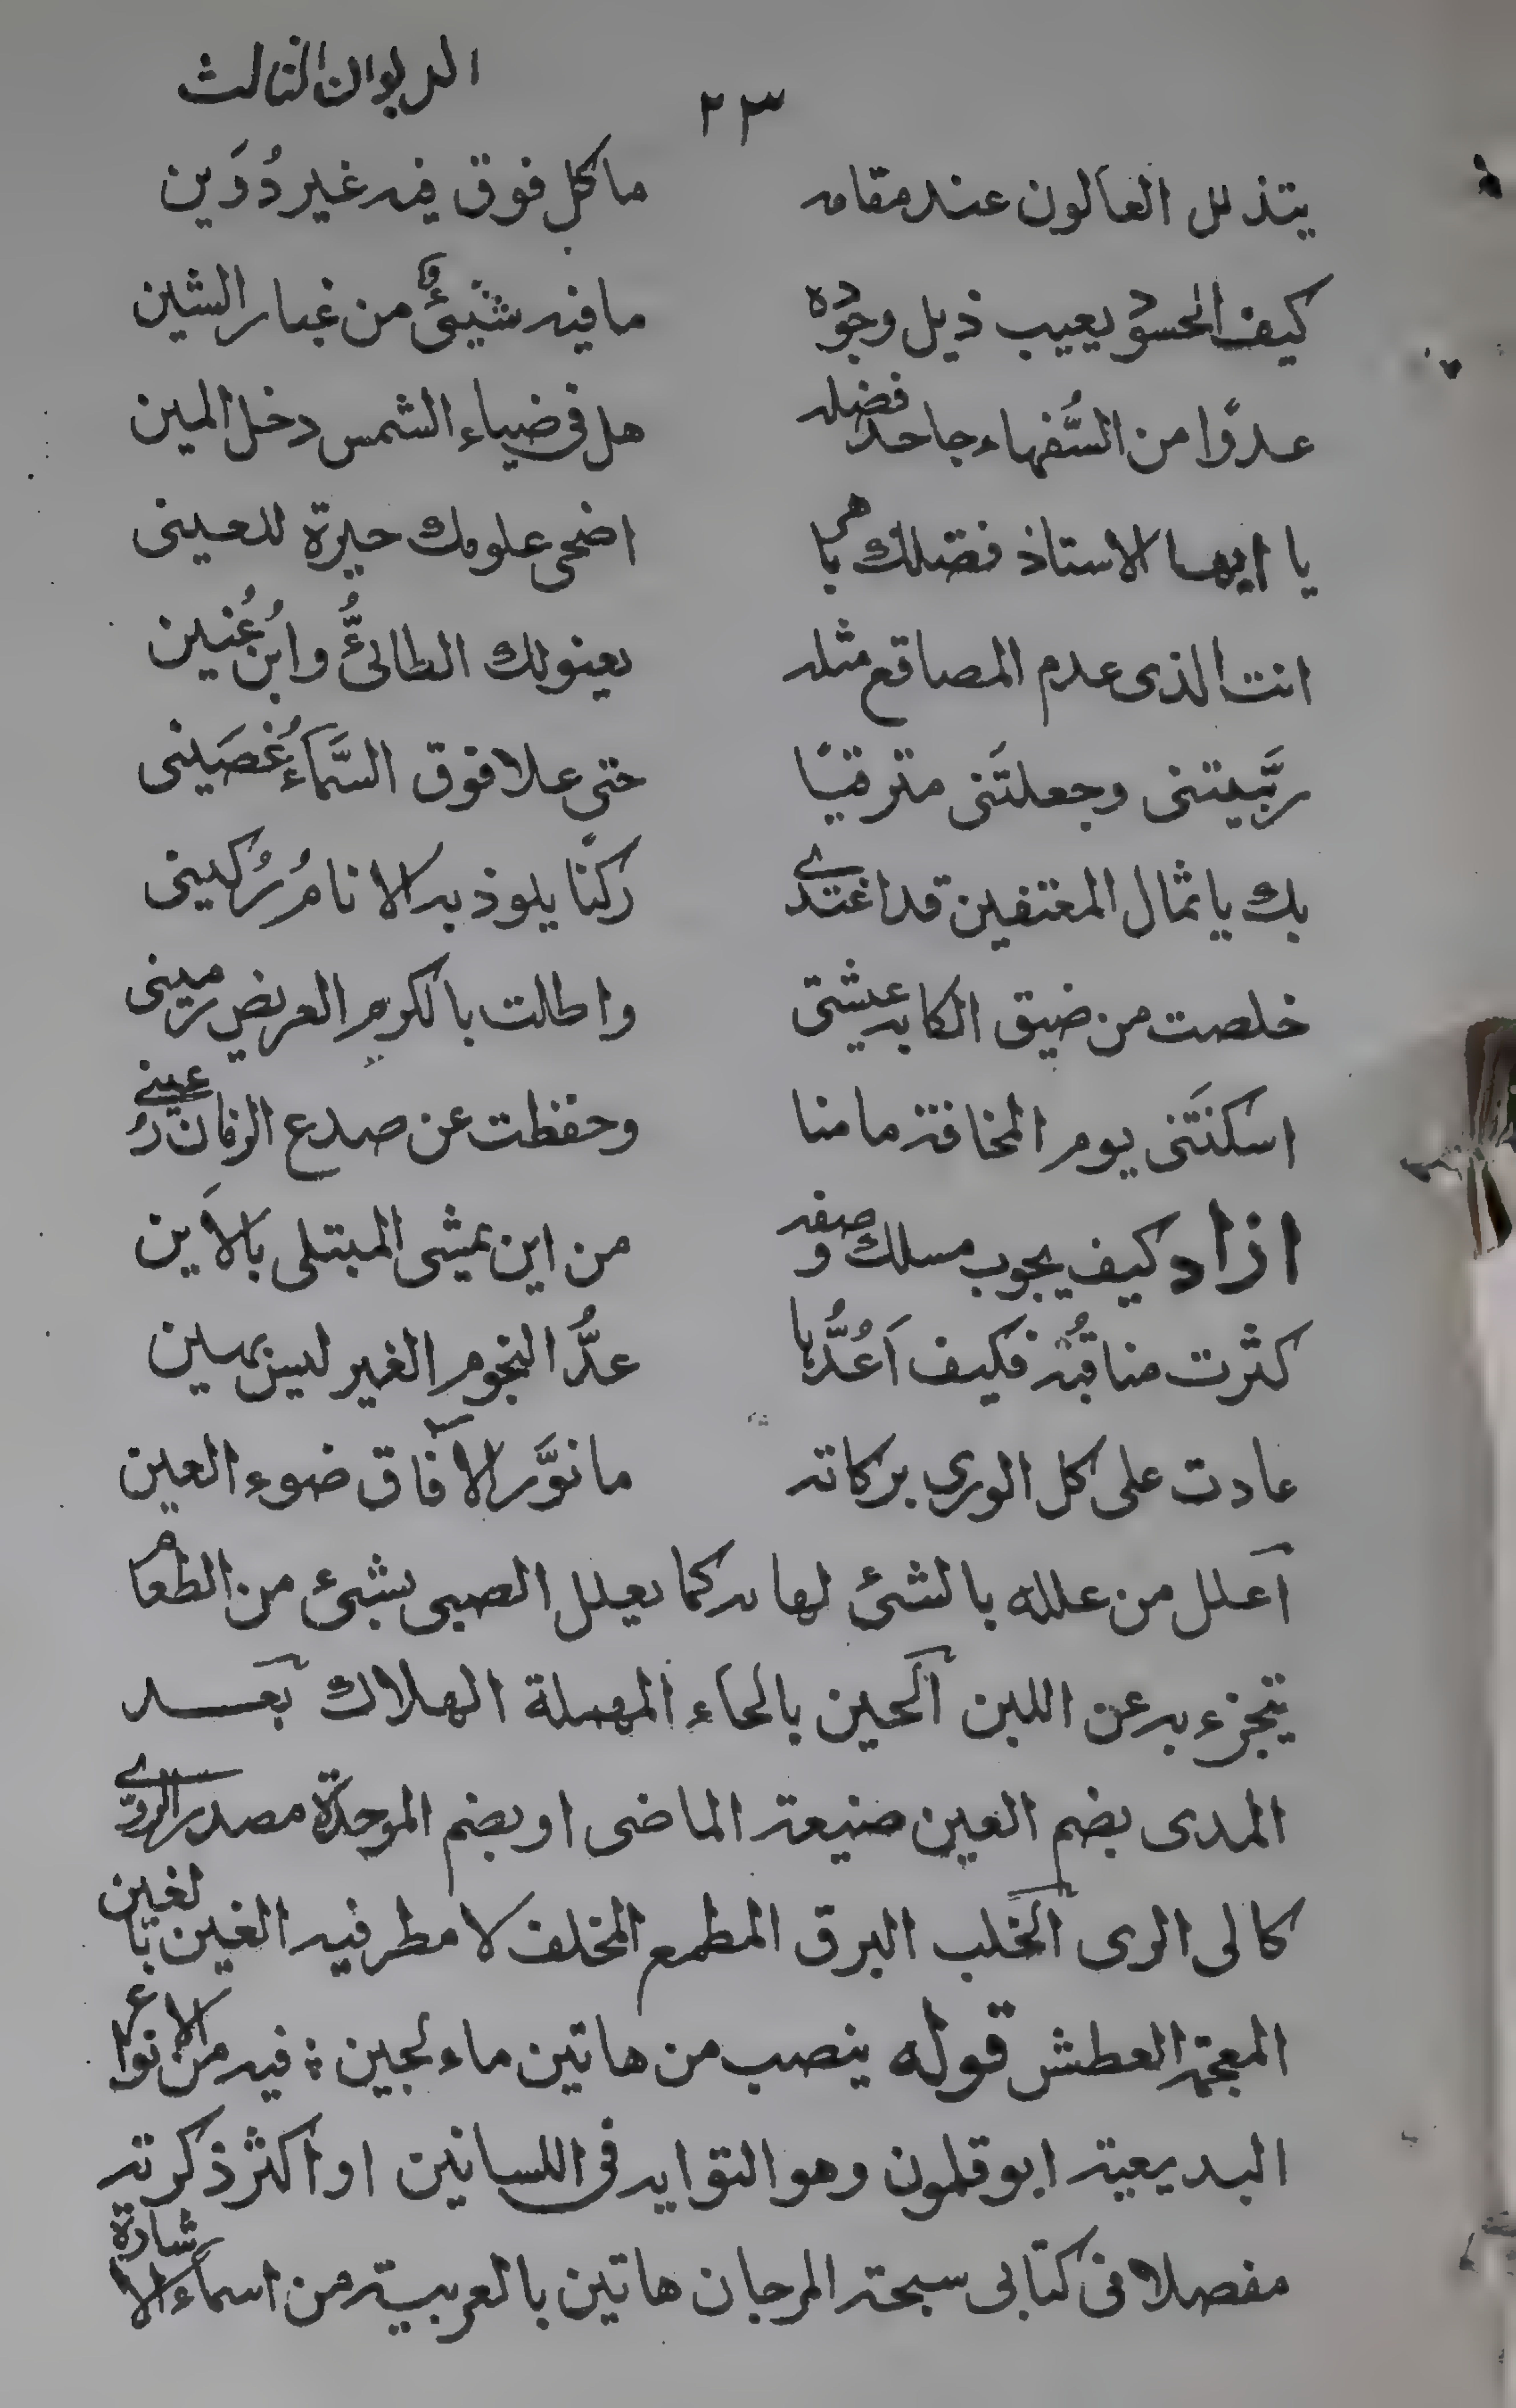 الديوان الثالث
٢٣
يتذلل العالون عند مقامه ما كل فوق فيه غير دُوَين
كيف الحسود يعيب ذيل وجوده ما فيه شيئ من غبار الشين
عدوا من السُّفهاء جاحد فضله هل فى ضياء الشمس دخل المين
يا ايها الاستاذ فضلك باهر اضحى علومك حيرة للعينى
انت الذى عدم المصاقع مثله يعنو لك الطائىُّ وابنُ عُنين
ربَّيتنى وجعلتَنى مترقيًا حتى علا فوق السَّماءِ غُصَينى
بك يا ثمال المعتفين قد اغتدى ركنًا يلوذ به الانامُ رُكينى
خلصت من ضيق المكاره عيشتى واطالت بالكرم العريض
اسكنتَنى يوم المخافة مامنا وحفظت عن صدع الزمان رُعينى
ازاد كيف يجوب مسلك وصفه من اين يمشى المبتلى بالاَين
كثرت مناقبُه فكيف اَعُدُّها عدُّ النجوم الغير ليس بهين
عادت على كل الورى بركاته ما نوَّر الآفاق ضوء العين
اعلل من علله بالشئ لهاه به كما يعلل الصبى بشئ من الطعام
يتجزء به عن اللبن الحين بالحاء المهملة الهلاك بعد
المدى بضم العين صيغة الماضى او بضم الموحدة مصدر الروى
كالى الرى الخلب البرق المطمع المخلف لا مطر فيه الغين بالغين
المعجمة العطش قوله ينصب من هاتين ماء لجين ؛ فيه من الانواع
البديعية ابو قلمون وهو التوايه فى اللسانين او اكثر ذكرته
مفصلا فى كتابى سبحة المرجان هاتين بالعربية من اسماء الاشارة